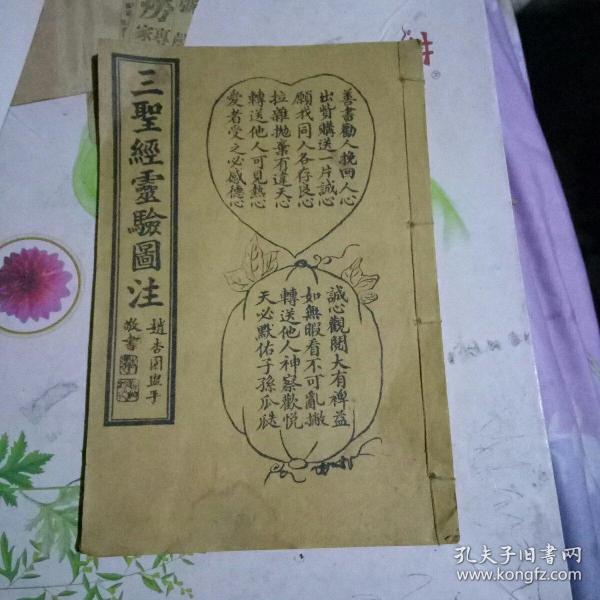 三聖經靈驗圖注
敬書
善書勸人挽回人心
出貲購送一片誠心
願我同人各存良心
拉雜拋棄有違天心
轉送他人可見熱心
愛者受之必感德心
誠心觀閱大有裨益
如無暇看不可亂撇
轉送他人神察歡悅
天必默佑子孫瓜瓞
專家
孔夫子旧书网
www.kongfz.com